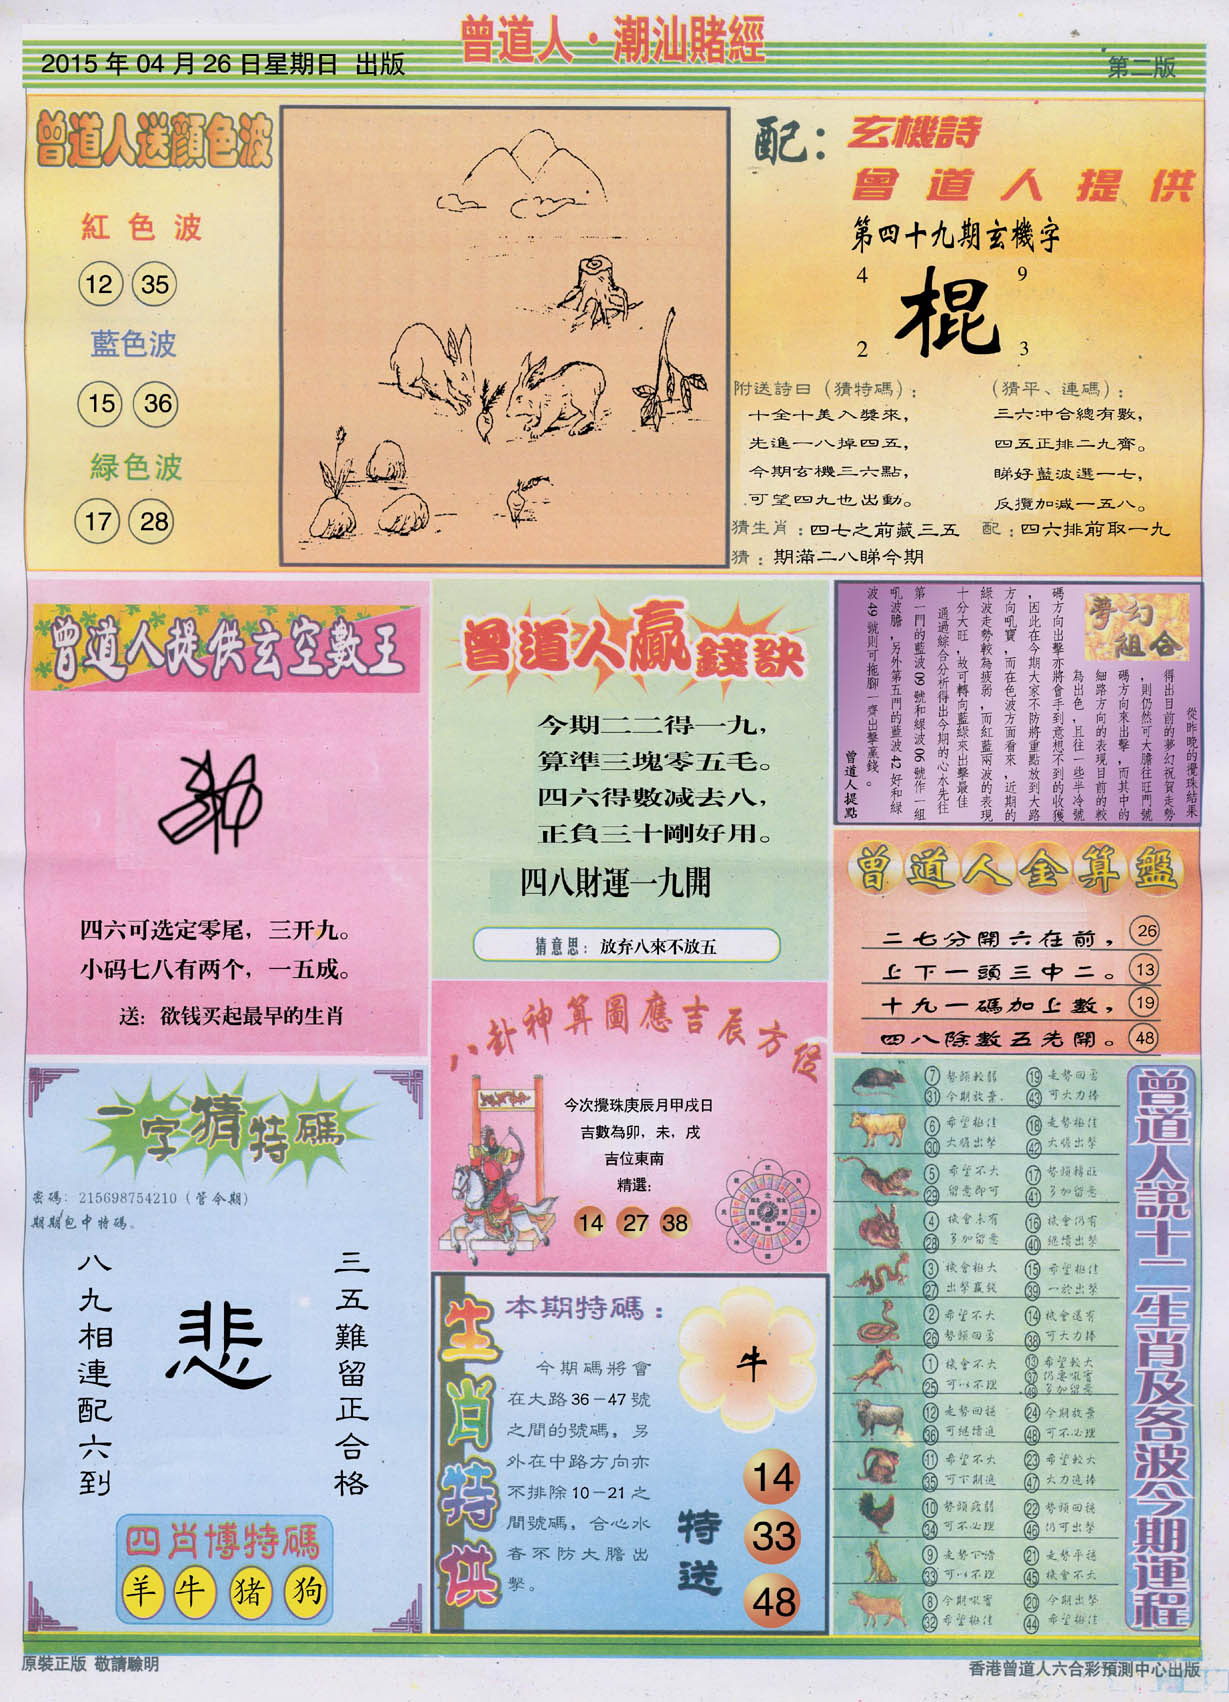 曾道人·潮汕賭經
2015 年 04 月 26 日星期日 出版
第二版
曾道人送顏色波
紅色波
12 35
藍色波
15 36
緑色波
17 28
配：
玄機詩
曾道人提供
第四十九期玄機字
4 9
棍
2 3
附送詩曰（猜特碼）：
十全十美入獎來，
先進一八掉四五，
今期玄機三六點，
可望四九也出動。
（猜平、連碼）：
三六冲合總有數，
四五正排二九齊。
睇好藍波選一七，
反攬加减一五八。
猜生肖：四七之前藏三五 配：四六排前取一九
猜：期滿二八睇今期
曾道人提供玄空數王
四六可选定零尾，三开九。
小码七八有两个，一五成。
送：欲钱买起最早的生肖
曾道人贏錢訣
今期二二得一九，
算準三塊零五毛。
四六得數减去八，
正負三十剛好用。
四八財運一九開
猜意思：放弃八來不放五
夢幻
組合
從昨晚的攪珠結果
得出目前的夢幻祝賀走勢
，則仍然可大膽往旺門號
碼方向來出擊，而其中的
細路方向的表現目前的較
為出色，且往一些半冷號
碼方向出擊亦將會手到意想不到的收獲
，因此在今期大家不防將重點放到大路
方向吼寶，而在色波方面看來，近期的
綠波走勢較為疲弱，而紅藍兩波的表現
十分大旺，故可轉向藍綠來出擊最佳
通過綜合分析得出今期的心水先往
第一門的藍波09號和緑波06號作一組
吼波膽，另外第五門的藍波42好和緑
波49號則可拖腳一齊出擊贏錢。
曾道人提點
曾道人金算盤
二七分開六在前， 26
上下一頭三中二。 13
十九一碼加上數， 19
四八除數五先開。 48
八卦神算圖應吉辰方位
今次攪珠庚辰月甲戌日
吉數為卯，未，戌
吉位東南
精選：
14 27 38
一字猜特碼
密碼：215698754210（管令期）
期期包中特碼。
三五難留正合格
悲
八九相連配六到
四肖博特碼
羊 牛 猪 狗
生肖特供
本期特碼：
今期碼將會
在大路36－47號
之間的號碼，另
外在中路方向亦
不排除10－21之
間號碼，合心水
春不防大膽出
擊。
牛
特送
14
33
48
曾道人説十二生肖及各波今期運程
7 勢頭較弱 19 走勢回勇
31 今期放棄 43 可大力捧
6 希望極佳 18 走勢極佳
30 大膽出擊 42 大膽出擊
5 希望不大 17 勢頭轉旺
29 留意即可 41 多加留意
4 機會未有 16 機會仍有
28 多加留意 40 繼續出擊
3 機會極大 15 希望極佳
27 出擊贏錢 39 一於出擊
2 希望不大 14 機會還有
26 勢頭回勇 38 可大力捧
1 機會不大 13 希望較大
25 可以不理 37 仍要吸寶
49 多加留意
12 走勢回穩 24 今期放棄
36 可繼續追 48 可不必理
11 希望不大 23 希望較大
35 可下期追 47 大力追捧
10 勢頭疲弱 22 勢頭回穩
34 可不必理 46 仍可出擊
9 走勢下滑 21 走勢平穩
33 可以不理 45 機會不大
8 今期吸寶 20 今期出擊
32 希望極佳 44 希望極佳
原裝正版 敬請驗明
香港曾道人六合彩預測中心出版